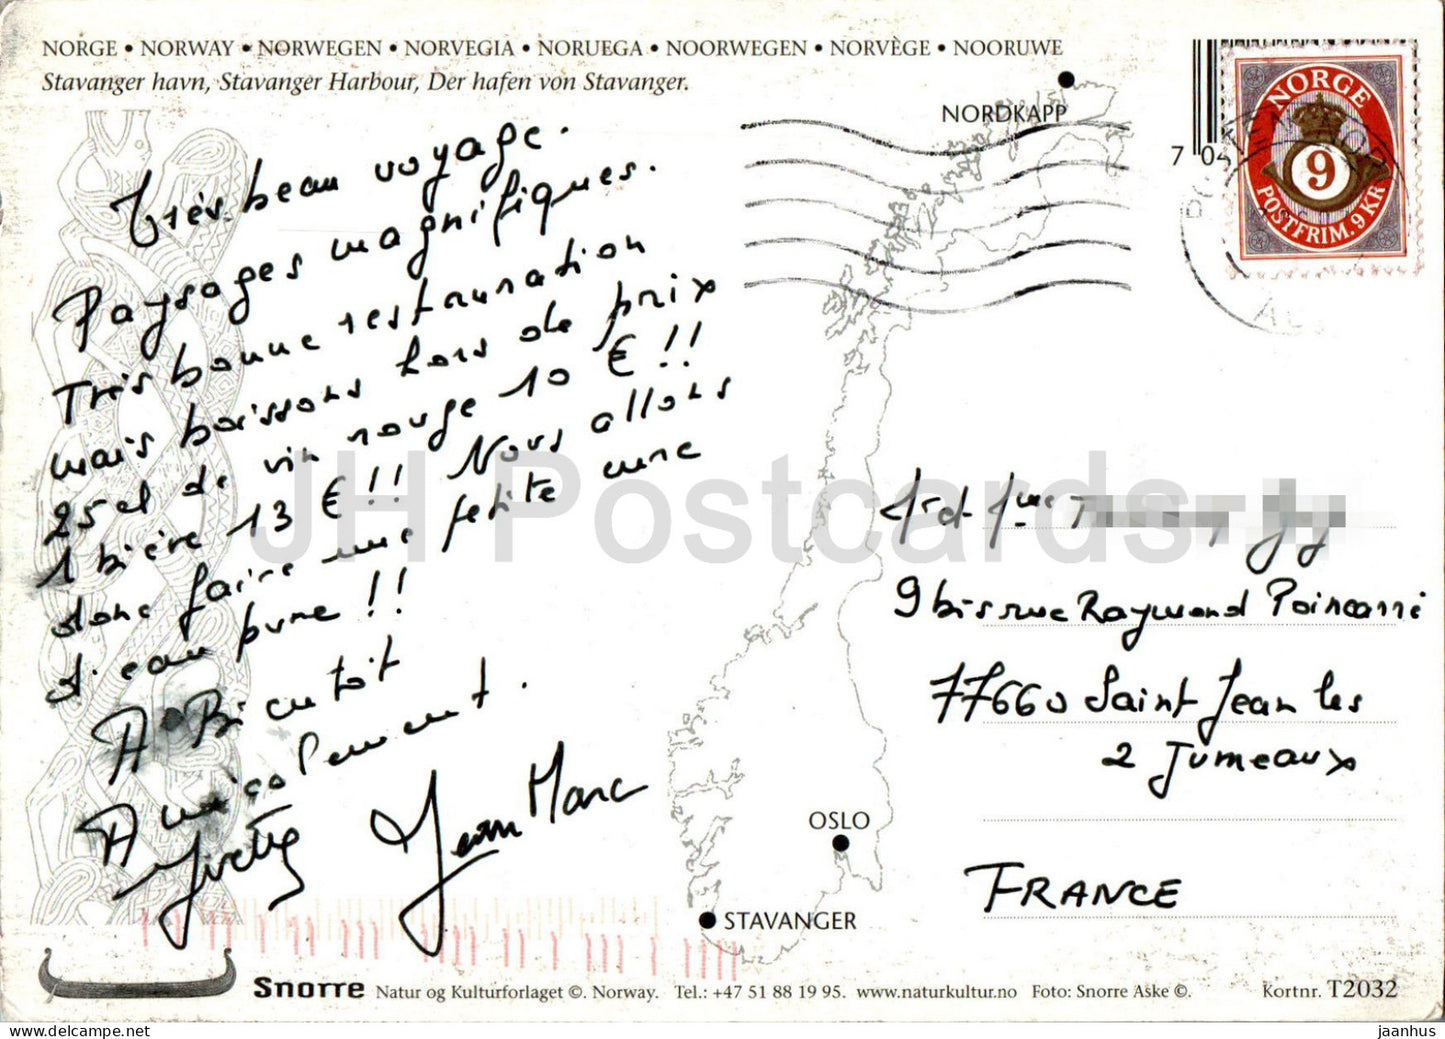 NORGE • NORWAY • NORWEGEN • NORVEGIA • NORUEGA • NOORWEGEN • NORVÈGE • NOORUWE
Stavanger havn, Stavanger Harbour, Der hafen von Stavanger.
Très beau voyage.
Paysages magnifiques.
Très bonne restauration
mais boissons hors de prix
25cl de vin rouge 10 € !!
1 bière 13 € !! Nous allons
donc faire une petite cure
d'eau pure !!
A Bientôt
Amicalement.
Yvette Jean Marc
NORDKAPP
7 04
NORGE
9
POSTFRIM. 9 KR
JH Postcards.store
9 bis rue Raymond Poincarré
77660 Saint Jean les
2 Jumeaux
FRANCE
OSLO
STAVANGER
Snorre Natur og Kulturforlaget ©. Norway. Tel.: +47 51 88 19 95. www.naturkultur.no Foto: Snorre Aske ©. Kortnr. T2032
www.delcampe.net
jaanhus